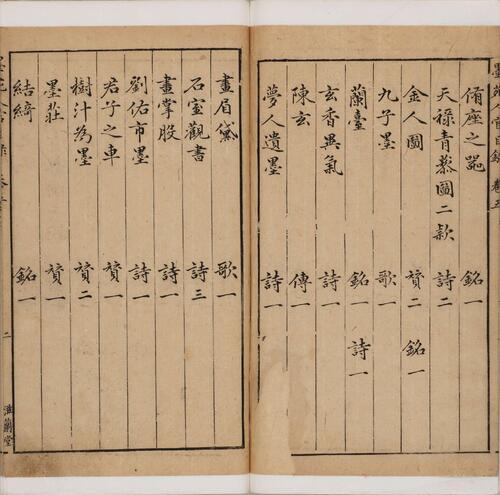 侑座之器 銘一
天祿青藜圖二款 詩二
金人圖 贊二 銘一
九子墨 歌一
蘭臺 銘一 詩一
玄香異氣 詩一
陳玄 傳一
夢人遺墨 詩一
畫眉黛 歌一
石室觀書 詩三
畫掌股 詩一
劉佑市墨 詩一
君子之車 贊一
樹汁為墨 贊二
墨莊 贊一
結綺 銘一
二